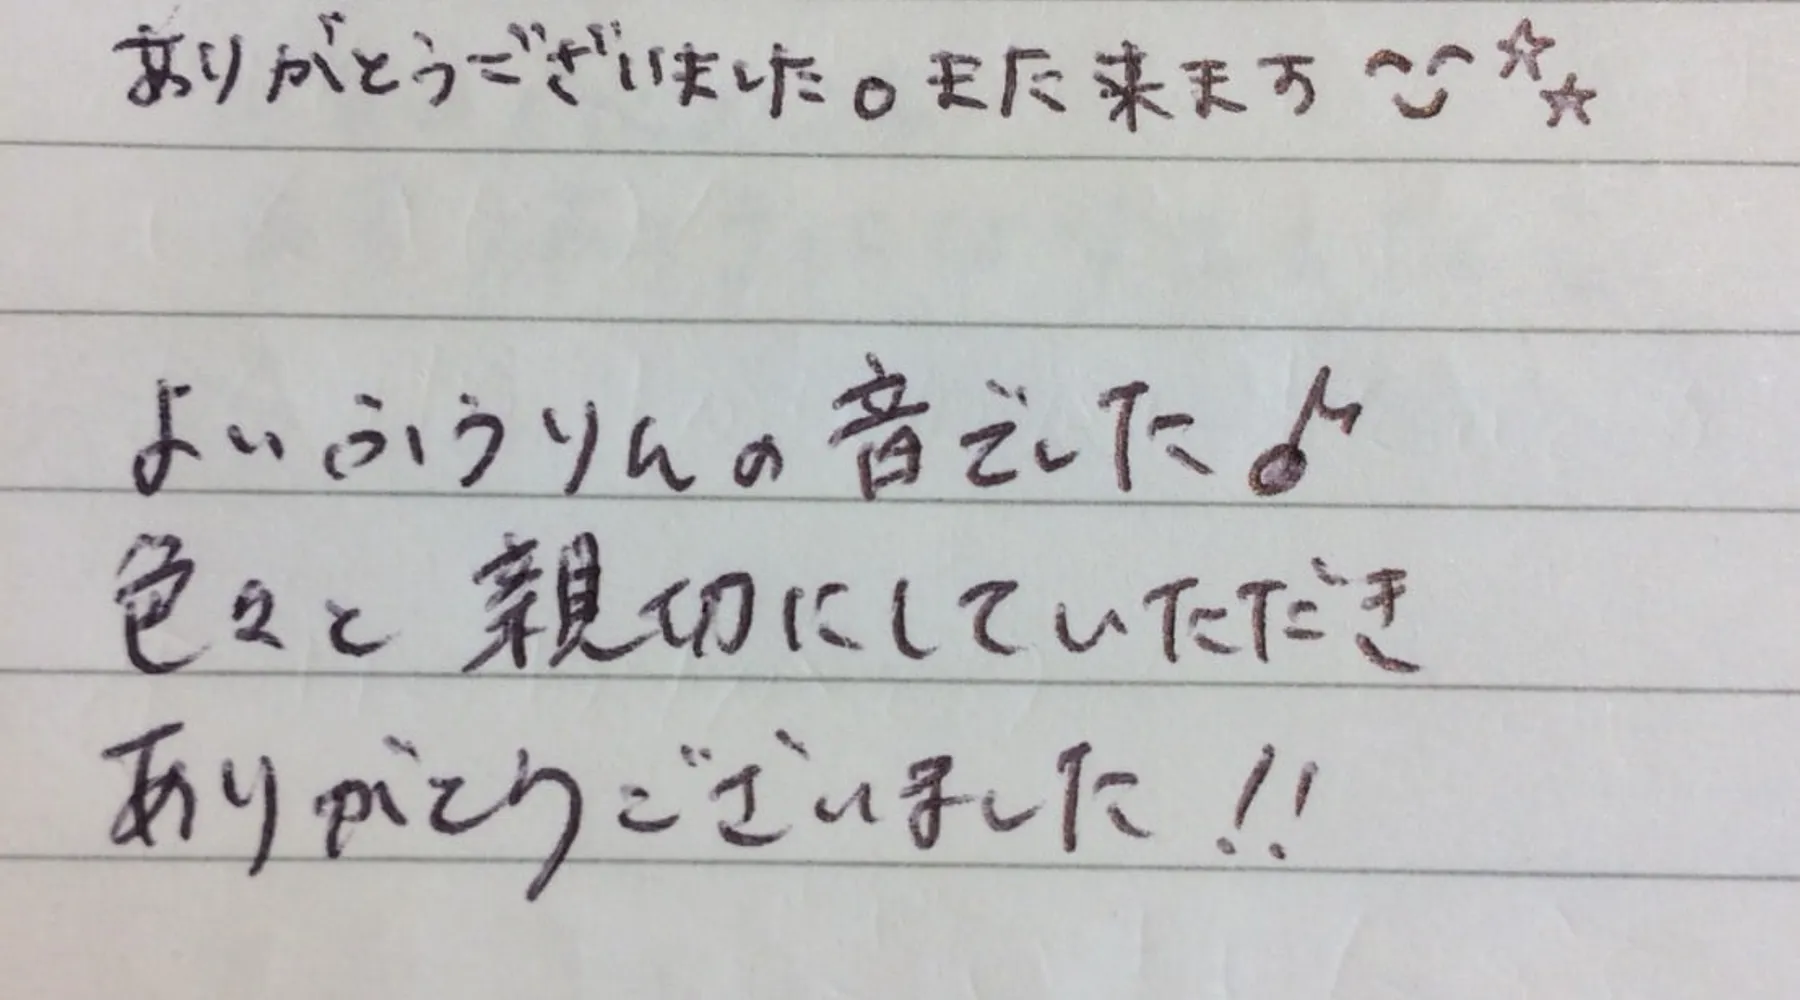 ありがとうございました。また来ます ☆☆
よいふうりんの音でした♪
色々と親切にしていただき
ありがとうございました!!